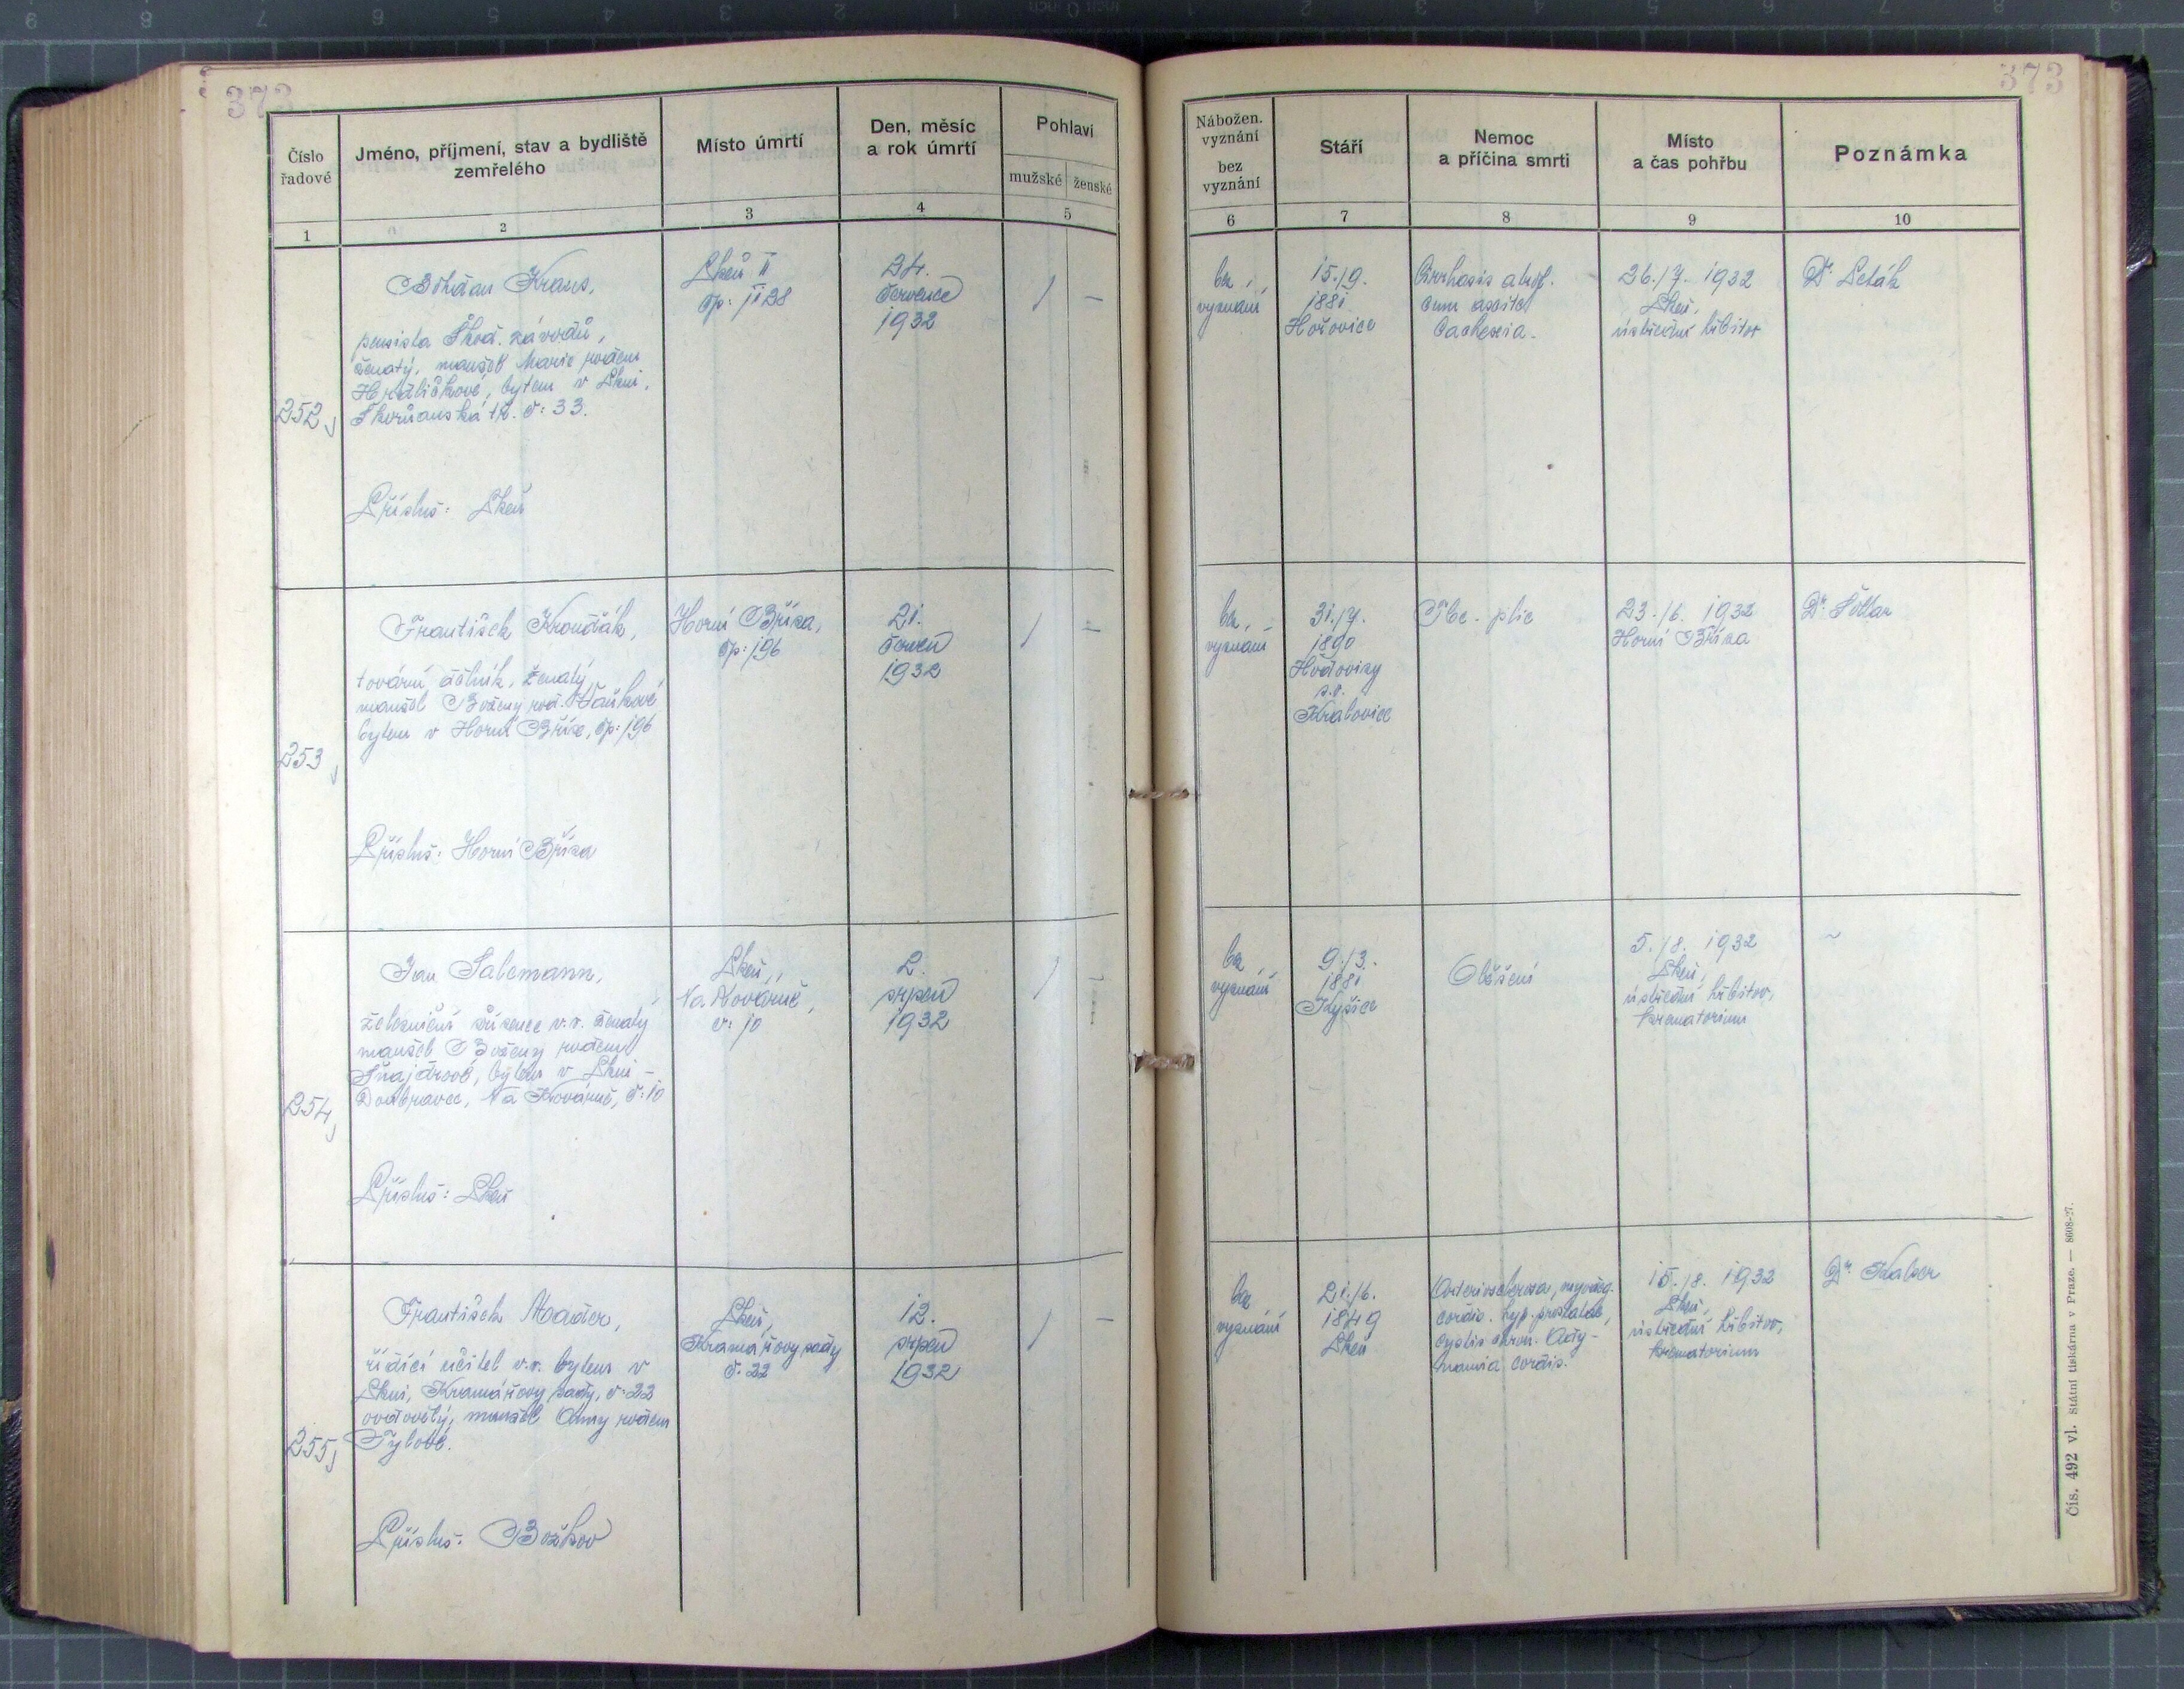 373
373
Číslo
řadové
Jméno, příjmení, stav a bydliště
zemřelého
Místo úmrtí
Den, měsíc
a rok úmrtí
Pohlaví
mužské
ženské
1
2
3
4
5
Nábožen.
vyznání
bez
vyznání
Stáří
Nemoc
a příčina smrti
Místo
a čas pohřbu
Poznámka
6
7
8
9
10
252
Bohdan Kraus,
pensista Škod. závodů,
ženatý, manžel Marie rozené
Hrdličkové, bytem v Plzni,
Skvrňanská tř. č: 33.
Přísluš: Plzeň
Plzeň II
čp: 1128
24.
července
1932
/
–
bez
vyznání
15./9.
1881
Hořovice
Cirrhosis
cum ascite
Cachexia.
26./7. 1932
Plzeň,
ústřední hřbitov
Dr. Peták
253
František
tovární dělník, ženatý,
manžel Boženy roz.
bytem v Horní Bříze, čp: 196
Přísluš: Horní Bříza
Horní Bříza,
čp: 196
21.
červen
1932
/
–
bez
vyznání
31./7.
1890
Hodovizy
p.o.
Kralovice
Tbc. plic
23./6. 1932
Horní Bříza
Dr.
254
Jan Salcmann,
železniční zřízenec v.v. ženatý
manžel Boženy rozené
Šnajdrové, bytem v Plzni –
Doubravce, Na Kovárně, č: 10
Přísluš: Plzeň
Plzeň,
Na Kovárně,
č: 10
2.
srpen
1932
/
–
bez
vyznání
9./3.
1881
Kyšice
Oběšení
5./8. 1932
Plzeň,
ústřední hřbitov,
krematorium
~
255
František Mader,
řídící učitel v.v. bytem v
Plzni, Kramářovy sady, č: 22
ovdovělý, manžel Anny rozené
Tylové.
Přísluš: Božkov
Plzeň,
Kramářovy sady
č. 22
12.
srpen
1932
/
–
bez
vyznání
21./6.
1849
Plzeň
Arteriosclerosa, myodeg.
cordis. hyp. prostatae,
cystis chron. Ady-
namia cordis.
15./8. 1932
Plzeň,
ústřední hřbitov,
krematorium
Dr. Kalser
Čís. 492 vl. Státní tiskárna v Praze. — 8608-27.